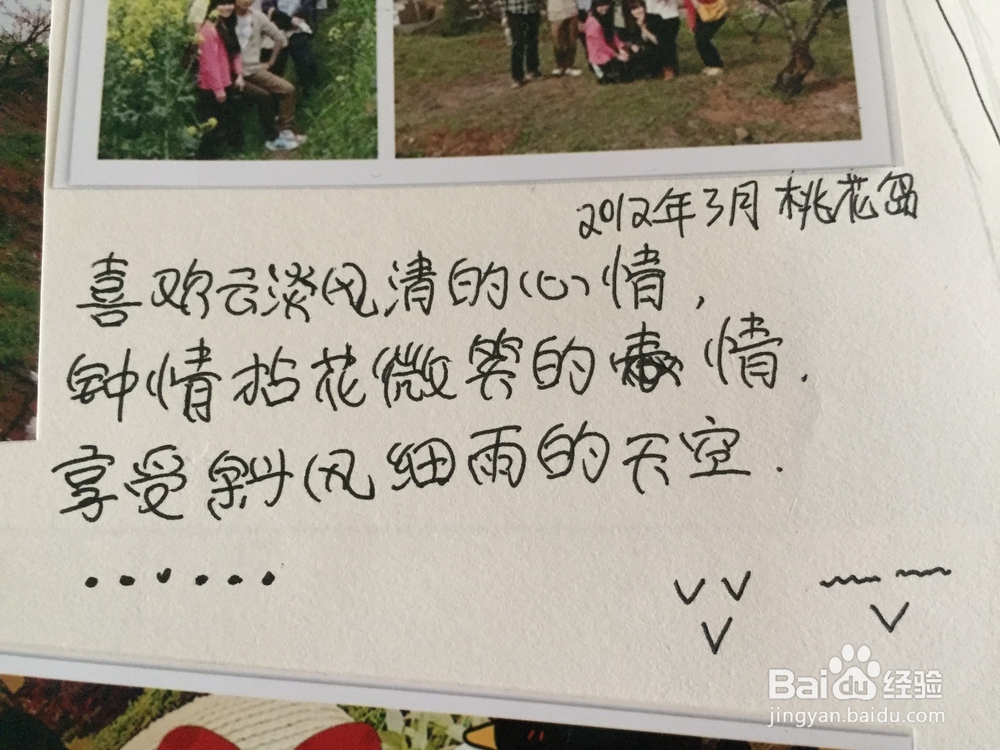 2012年3月 桃花岛
喜欢云淡风清的心情,
钟情拈花微笑的表情.
享受斜风细雨的天空.
......
Baidu 经验
jingyan.baidu.com